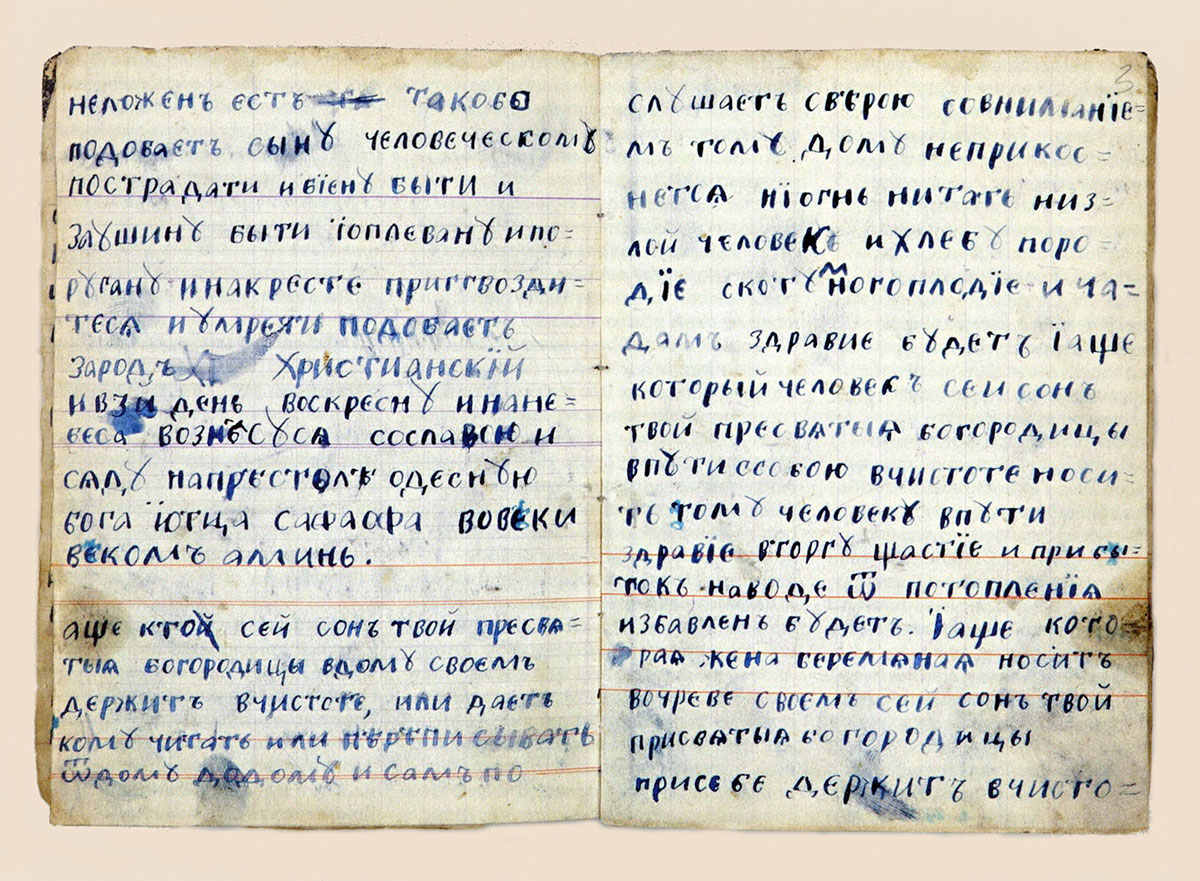 неложенъ естъ такобо
подобаетъ сынꙋ человеческомꙋ
пострадати и бїенꙋ быти и
заꙋшинꙋ быти їоплеванꙋ ипо=
рꙋганꙋ инакресте пригвозди=
тесѧ и ꙋмрети подобаетъ
зародъ Христианскїй
и в 3й день воскреснꙋ инане=
беса вознесꙋсѧ сославою и
сѧдꙋ напрестоле одеснꙋю
бога їотца сафаофа вовеки
векомъ аминь.
аще ктой сей сонъ твой пресвѧ=
тыѧ богородицы вдомꙋ своемъ
держитъ вчистоте, или даетъ
комꙋ читать или переписывать
ѿдомꙋ додомꙋ и самъ по
3
слꙋшаетъ сверою совниманїе=
мъ томꙋ домꙋ неприкос=
нетсѧ нїогнь нитать низ=
лой человекъ и хлебꙋ поро=
дїе скотꙋ многоплодїе и ча=
дамъ здравие бꙋдетъ їаще
который человекъ сей сонъ
твой пресвѧтыѧ богородицы
впꙋти ссобою вчистоте носи=
тъ томꙋ человекꙋ впꙋти
здравїе вторгꙋ щастїе и прибы=
токъ наводе ѿ потопленїѧ
избавленъ бꙋдетъ. їаще кото=
раѧ жена беремѧнаѧ носитъ
вочреве своемъ сей сонъ твой
присвѧтыѧ богородицы
присебе держитъ вчисто=